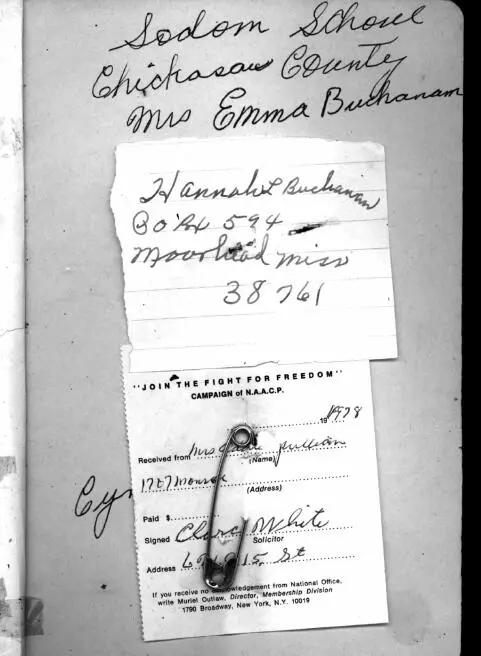 Sodom School
Chickasaw County
Mrs Emma Buchanam
Hannah L Buchanan
Box 594
Moorhead Miss
38761
"JOIN THE FIGHT FOR FREEDOM"
CAMPAIGN of N.A.A.C.P.
1978
Received from Mrs
(Name)
1727 Monroe
(Address)
Paid $
Signed White
Solicitor
Address 15 St
If you receive no acknowledgement from National Office,
write Muriel Outlaw, Director, Membership Division
1790 Broadway, New York, N.Y. 10019